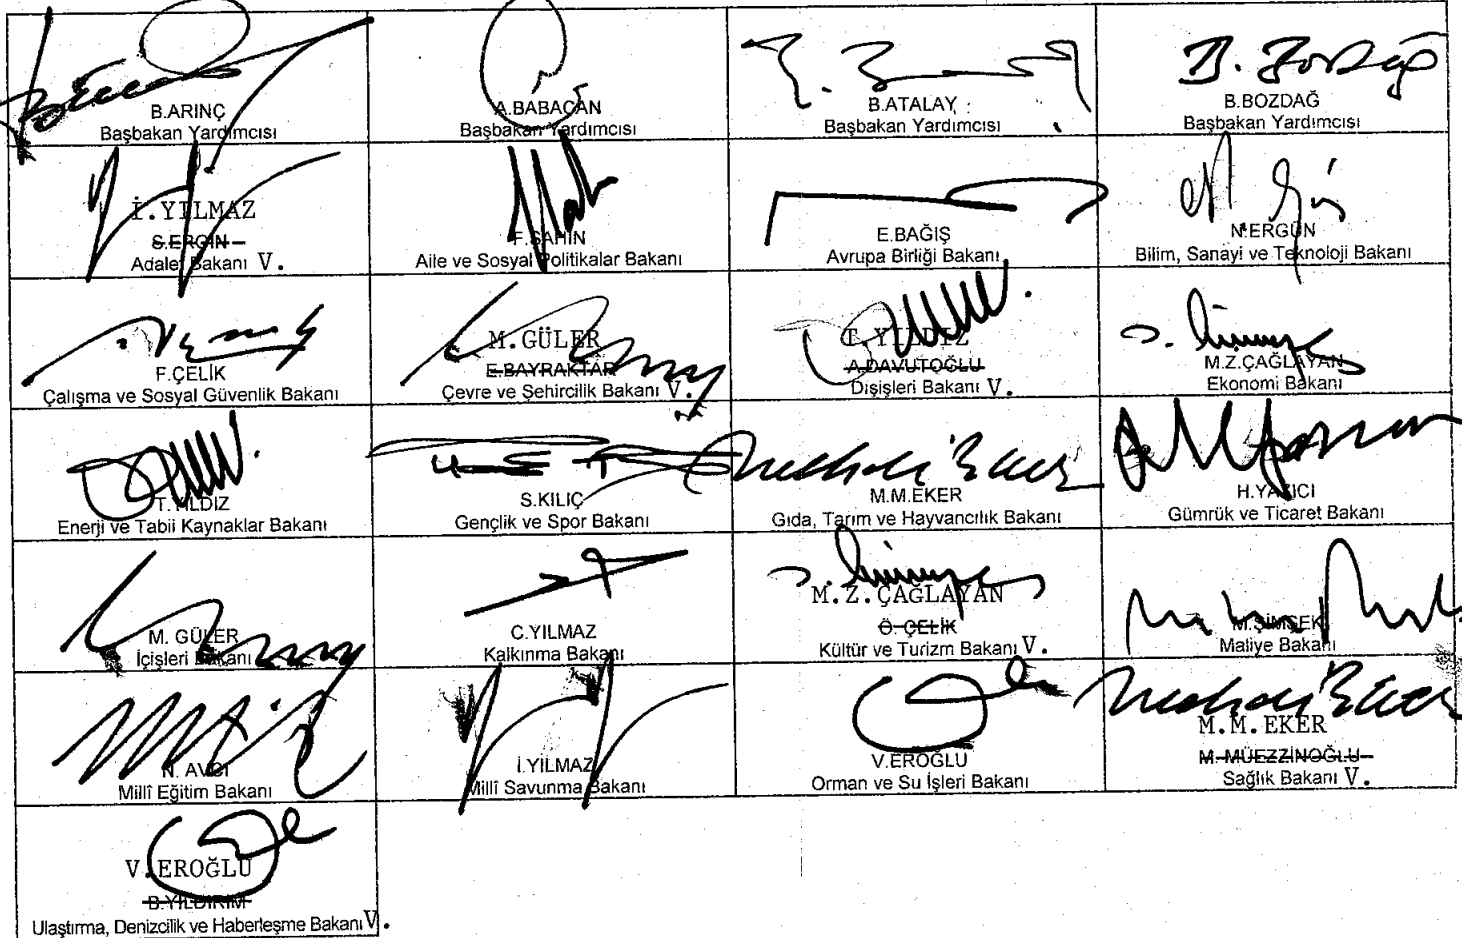 B.ARINÇ
Başbakan Yardımcısı
A.BABACAN
Başbakan Yardımcısı
B.ATALAY
Başbakan Yardımcısı
B.BOZDAĞ
Başbakan Yardımcısı
İ.YILMAZ
S.ERGİN
Adalet Bakanı V.
F.ŞAHİN
Aile ve Sosyal Politikalar Bakanı
E.BAĞIŞ
Avrupa Birliği Bakanı
N.ERGÜN
Bilim, Sanayi ve Teknoloji Bakanı
F.ÇELİK
Çalışma ve Sosyal Güvenlik Bakanı
M.GÜLER
E.BAYRAKTAR
Çevre ve Şehircilik Bakanı V.
T.YILDIZ
A.DAVUTOĞLU
Dışişleri Bakanı V.
M.Z.ÇAĞLAYAN
Ekonomi Bakanı
T.YILDIZ
Enerji ve Tabii Kaynaklar Bakanı
S.KILIÇ
Gençlik ve Spor Bakanı
M.M.EKER
Gıda, Tarım ve Hayvancılık Bakanı
H.YAZICI
Gümrük ve Ticaret Bakanı
M. GÜLER
İçişleri Bakanı
C.YILMAZ
Kalkınma Bakanı
M.Z.ÇAĞLAYAN
Ö. ÇELİK
Kültür ve Turizm Bakanı V.
M.ŞİMŞEK
Maliye Bakanı
N. AVCI
Millî Eğitim Bakanı
İ.YILMAZ
Millî Savunma Bakanı
V.EROĞLU
Orman ve Su İşleri Bakanı
M.M. EKER
M. MÜEZZİNOĞLU
Sağlık Bakanı V.
V.EROĞLU
B.YILDIRIM
Ulaştırma, Denizcilik ve Haberleşme Bakanı V.